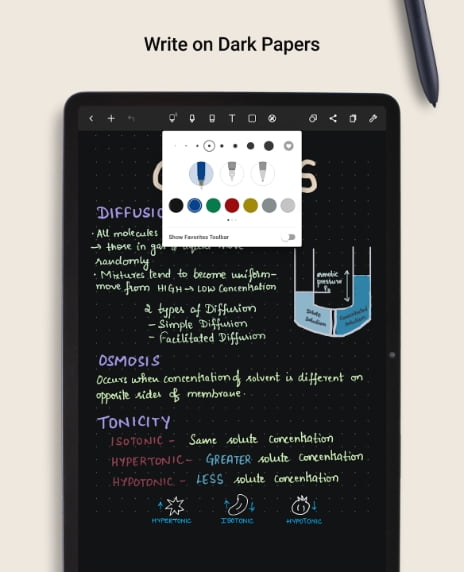 Write on Dark Papers
Show Favorites Toolbar
DIFFUSIO
· All molecules
→ those in
randomly
· Mixtures tend to become uniform-
move from HIGH → LOW Concentration
2 types of Diffusion
- Simple Diffusion
- Facilitated Diffusion
osmotic
pressure
Dilute
Solution
Concentrated
Solution
OSMOSIS
Occurs when concentration of solvent is different on
opposite sides of membrane.
TONICITY
ISOTONIC - Same solute concentration
HYPERTONIC - GREATER solute concentration
HYPOTONIC - LESS solute concentration
HYPERTONIC ISOTONIC HYPOTONIC